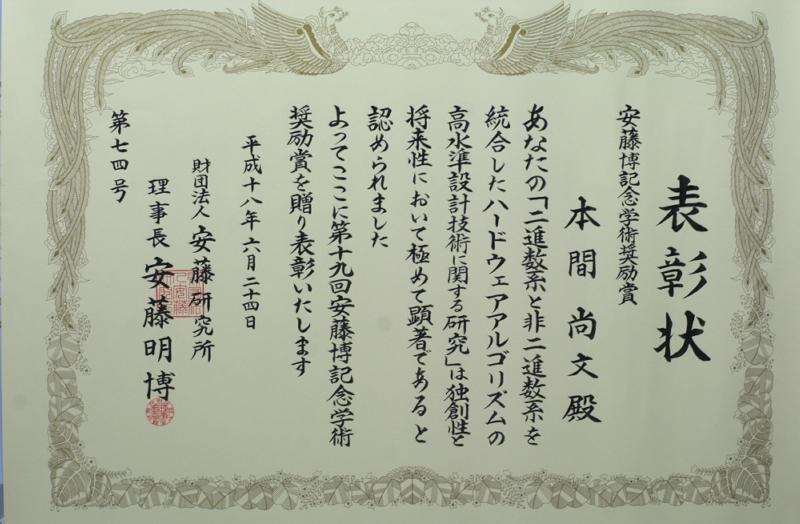 表彰状
安藤博記念学術奨励賞
本間尚文殿
あなたの「二進数系と非二進数系を
統合したハードウェアアルゴリズムの
高水準設計技術に関する研究」は独創性と
将来性において極めて顕著であると
認められました
よってここに第十九回安藤博記念学術
奨励賞を贈り表彰いたします
平成十八年六月二十四日
財団法人安藤研究所
理事長安藤明博
第七四号